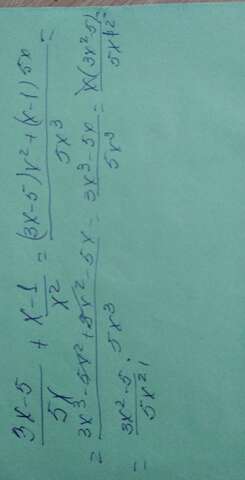 (3x-5)/5x + (x-1)/x² = ((3x-5)x²+(x-1)5x)/5x³ =
= (3x³-5x²+5x²-5x)/5x³ = (3x³-5x)/5x³ = x(3x²-5)/5x³² =
= (3x²-5)/5x²